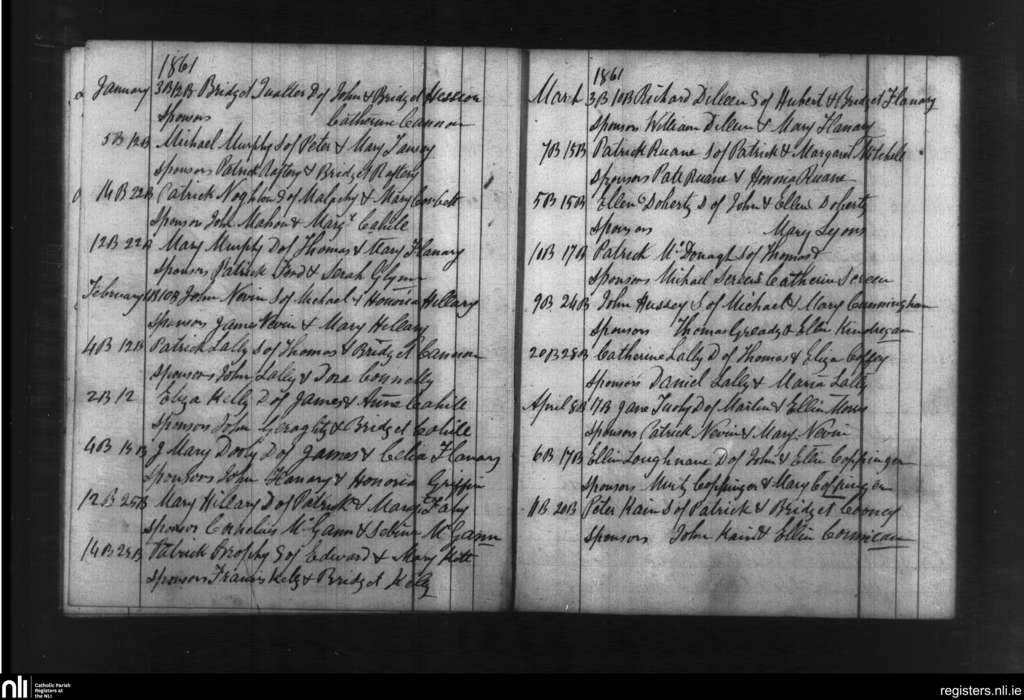 1861
January 3B 12B Bridget Qualter D of John & Bridget Hession
Sponsors Catherine Cannon
5B 12B Michael Murphy S of Peter & Mary
Sponsors Patrick Raftery & Bridget Raftery
14B 22B Patrick Noghton S of Malachy & Mary Corbett
Sponsors John Mahon & Mary Cahill
12B 22B Mary Murphy D of Thomas & Mary Flanary
Sponsors Patrick Ford & Sarah Glynn
February 10B John Nevin S of Michael & Honoria Hillary
Sponsors James Nevin & Mary Hillary
4B 12B Patrick Lally S of Thomas & Bridget Cannon
Sponsors John Lally & Dora Connolly
2B 12 Eliza Kelly D of James & Anne Cahill
Sponsors John Geraghty & Bridget Cahill
4B Mary Dooly D of James & Celia Flanary
Sponsors John Flanary & Honoria Griffin
12B 25B Mary Hillary D of Patrick & Mary Fahy
Sponsor Cornelius McGann & Sabina McGann
14B 25B Patrick Brophy S of Edward & Mary
Sponsors Francis Kelly & Bridget Kelly
1861
March 3B 10B Richard Dilleen S of Hubert & Bridget Flanary
Sponsors William Dilleen & Mary Flanary
7B 15B Patrick Ruane S of Patrick & Margaret Mitchell
Sponsors Patk Ruane & Honoria Ruane
5B 15B Ellen Doherty D of John & Ellen Doherty
Sponsors Mary Lyons
10B 17B Patrick McDonagh S of Thomas &
Sponsors Michael & Catherin
9B 24B John Hussey S of Michael & Mary Cunningham
Sponsors Thomas Gready & Ellen Kendregan
20B 25B Catherine Lally D of Thomas & Eliza Coffey
Sponsors Daniel Lally & Maria Lally
April 8B 17B Jane Tuohy D of Martin & Ellin
Sponsors Patrick Nevin & Mary Nevin
6B 17B Ellin Loughnane D of John & Ellin Coppinger
Sponsors Coppinger & Mary Coppinger
11B 20B Peter Kain S of Patrick & Bridget Cooney
Sponsors John Kain & Ellin
nli
Catholic Parish
Registers at
the NLI
registers.nli.ie